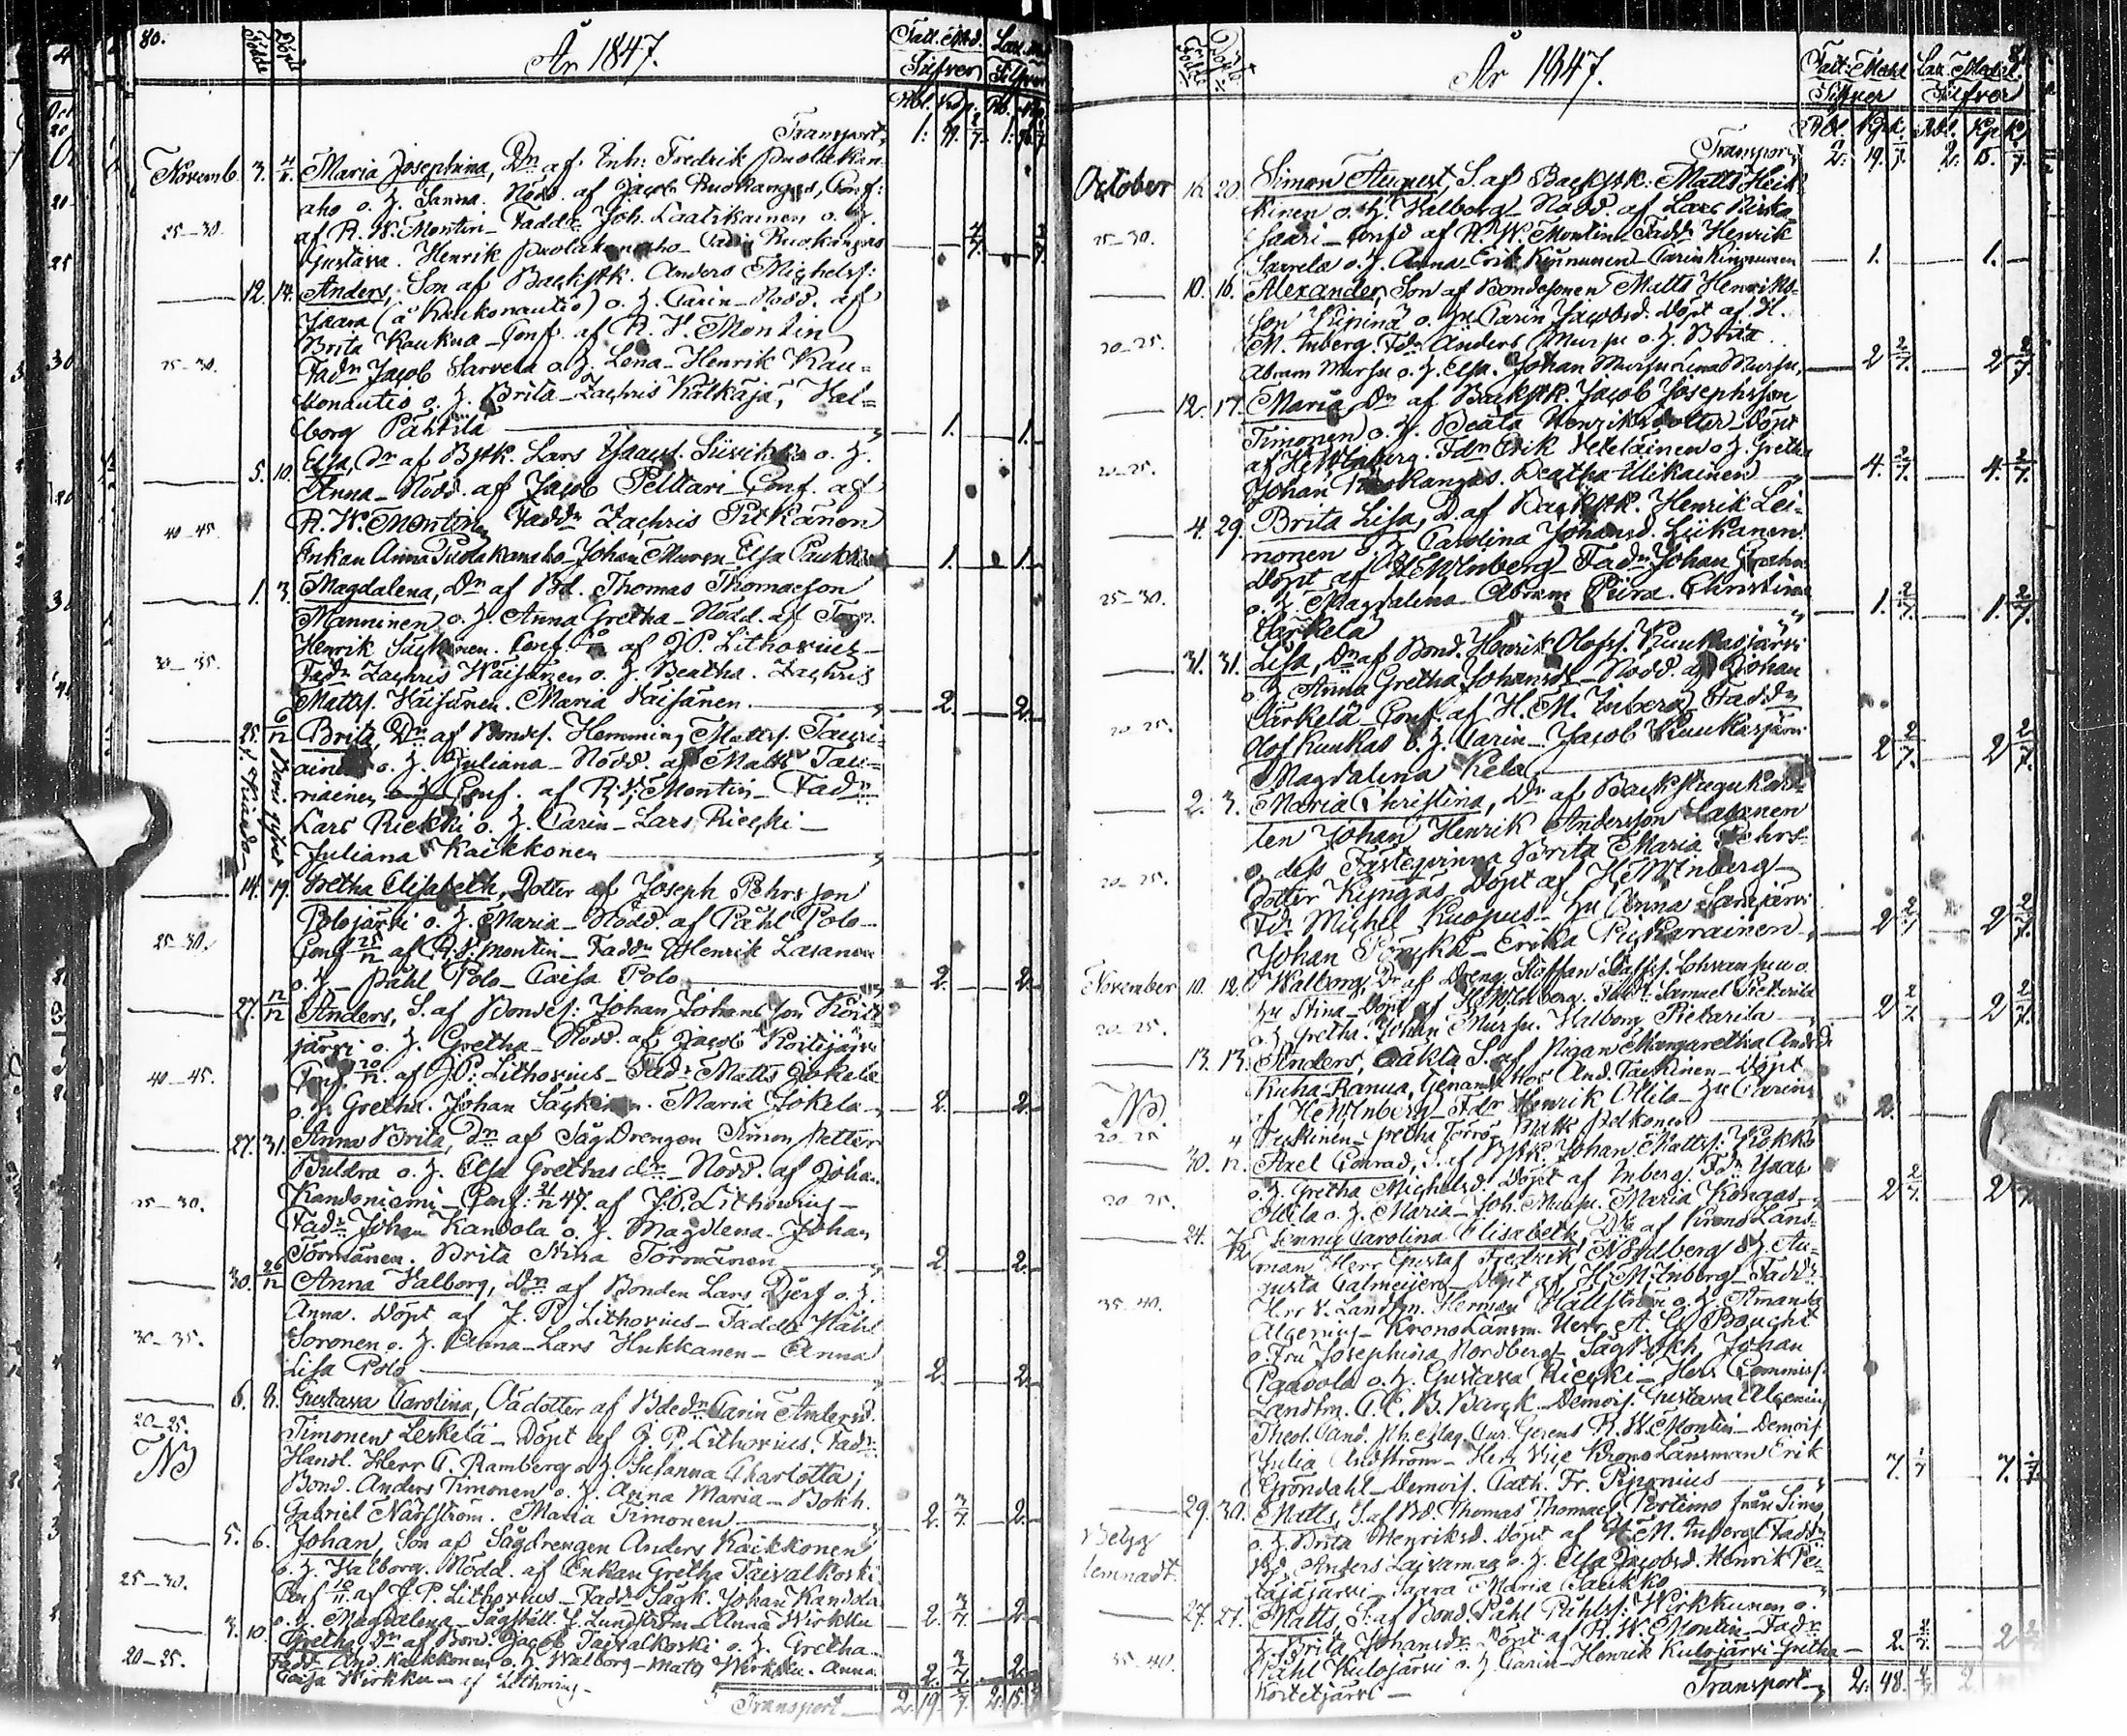 80.
Födde
Döpte
År 1847.
Fatt. Med. Laz. Med.
Silfver Silfver
Rbl. Kop. Rb. Kop.
Transport, 1: 97. 2/7. 1:
Novemb. 3. 4. Maria Josephina, Dn af Inh: Fredrik Puolakan-
aho o. h. Sanna. Nödd. af Jacob Ruokangas, Conf:
25–30. af R. W. Montin – Fadd. Joh. Laatikainen o. h.
Gustava. Henrik Puolakanaho – Carin Ruokangas
12. 14. Anders, Son af Backstk. Anders Michelss:
Ikara (å Kaukonautio) o. h. Carin – Nödd. af
Brita Kaukua – Conf. af R. W. Montin
25–30. Fadn Jacob Sarvela o. h. Lena – Henrik Kau-
konautio o. h. Brita – Zachris Kälkäjä, Val-
borg Pahtila 1. 1.
5. 10. Elsa, Dn af Bstk. Lars Isaacs. Siirikko o. h.
Anna – Nödd. af Jacob Peltari – Conf. af
40–45. R. W. Montin, Faddn Zachris Pitkänen
Enkan Anna Puolakanaho – Johan Elsa Paukku 1. 1.
1. 3. Magdalena, Dn af Bd. Thomas Thomasson
Manninen o. h. Anna Gretha – Nödd. af
Henrik Conf. af J. P. Lithovius –
30–35. Fadn Zachris Wäisänen o. h. Beatha. Zachris
Matts. Väisänen. Maria Väisänen. 2. 2.
25. 6/12 Brita, Dn af Bondes. Hemming Matts. Tauri-
ainen o. h. Juliana – Nödd. af Matts Tau-
riainen Conf. af R. W. Montin – Fadn
Lars Riekki o. h. Carin – Lars Riekki –
Juliana Kaikkonen
14. 19. Gretha Elisabeth, Dotter af Joseph Pehrsson
Polojärvi o. h. Maria – Nödd. af Påhl Polo –
25–30. Conf. 25/12 af R. W. Montin – Faddn Henrik Lasanen
o. h. – Påhl Polo – Caisa Polo 2. 2.
27. 12/12 Anders, S. af Bondes: Johan Johansson Koiti-
järvi o. h. Gretha – Nödd. af Jacob Koitijärvi
40–45. Conf. 20/12. af J. P. Lithovius – Fadr Matts Jokela
o. h. Gretha. Johan Säckinen. Maria Jokela 2. 2.
27. 31. Anna Brita, Dn af Sågdrengen Simon Petter
Buldra o. h. Elsa Grethas dr – Nödd. af Johan
25–30. Kandoniemi – Conf: 21/12 47. af J. P. Lithovius –
Fadr Johan Kandola o. h. Magdlena – Johan
Törmänen. Brita Stina Törmänen 2. 2.
30. 26/12 Anna Valborg, Dn af Bonden Lars Djerf o. h.
Anna. Döpt af J. P. Lithovius – Faddr Påhl
30–35. Soronen o. h. Anna – Lars Hukkanen – Anna
Lisa Polo 2. 2.
6. 8. Gustava Carolina, Oädotter af Bdedn Carin Andersd.
20–25. Timonen Leskelä – Döpt af J. P. Lithovius. Fadr
NB Handl. Herr C. Ramberg o. h. Susanna Charlotta;
Bond. Anders Timonen o. h. Anna Maria – Bokh.
Gabriel Närfström. Maria Timonen 2. 3/7. 2.
5. 6. Johan, Son af Sågdrengen Anders Kaikkonen
o. h. Valborg. Nödd. af Enkan Gretha Taivalkoski
25–30. Conf 10/11. af J. P. Lithovius – Faddr Sågk. Johan Kandola
o. h. Magdalena – Sågställ. J. Lundström – Anna Wirkku 2. 3/7. 2.
3. 10. Gretha, Dn af Bond. Jacob Taivalkoski o. h. Gretha –
20–25. Fadd. And. Kaikkonen o. h. Walborg – Matts Wirkku. Anna
Caisa Wirkku – af Lithovius – 2. 3/7. 2.
Transport 2. 19. 2. 15.
Födde
Döpte
År 1847.
81.
Fatt. Medel Laz. Medel.
Silfver Silfver
Rbl. Kpk. Rbl. Kpk.
Transport 2. 19. 2. 15.
October 16. 20. Simon August, S. af Backstk. Matts Heik-
kinen o. h. Valborg – Nödd. af Lars Pirka-
25–30. saari – Confd af R. W. Montin – Fadr Henrik
Sarvela o. h. Anna – Erik Kinnunen – Carin Kinnunen 1. 1.
10. 16. Alexander, Son af Bondesonen Matts Henriks-
son Piipina o. hu Carin Jacobsd. Döpt af H.
20–25. M. Inberg. Fdr Anders Mursu o. h. Brita.
Abram Mursu o. h. Elsa. Johan Mursu, Lena Mursu, 2 2/7. 2 2/7.
12. 17. Maria, Dn af Backstk. Jacob Josephsson
Timonen o. h. Beata Henriksdotter – Döpt
20–25. af H M Inberg. Fdr Erik Heteläinen o. h. Gretha
Johan Ruokangas. Beatha Ulikainen 4. 2/7. 4. 2/7.
4. 29. Brita Lisa, D. af Backstk. Henrik Lei-
nonen o. h. Carolina Johansd. Liikanen.
Döpt af H M Inberg – Fadr Johan Grahn
25–30. o. h. Magdalena – Abram Piira. Christina
Särkelä 1. 2/7. 1. 2/7.
31. 31. Lisa, Dn af Bond. Henrik Olofs. Kuukasjärvi
o. h. Anna Gretha Johansd. – Nödd. af Johan
Särkelä – Conf. af H. M. Inberg – Faddr
20–25. Olof Kuukas o. h. Carin – Jacob Kuukasjärvi
Magdalena Kela 2 2/7. 2 2/7.
2. 3. Maria Christina, Dn af Backstugukarl-
len Johan Henrik Andersson Lasanen
o. dess Fästeqvinna Brita Maria Pehrs-
20–25. dotter Kyngäs, Döpt af H M Inberg –
Fdr Michel Kuopus – hu Anna Sarajärvi
Johan – Erika Puikarainen 2 2/7. 2 2/7.
November 10. 12. Walborg, Dr af Dreng. Staffan Staffss. Lohvansuu o.
hu Stina – Döpt af H M Inberg. Fadr. Samuel Piekarila
20–25. o. h. Gretha. Johan Mursu. Valborg Piekarila 2 2/7. 2 2/7.
13. 13. Anders, Oäkta S. af Pigan Margaretha Andsdr
Kuha-Ranua, Genom Mor And. Taskinen – Döpt
NB. af H M Inberg – Fdr Henrik Ollila – hu Carin
20–25 Taskinen – Gretha Törrö, Matts Pelkonen 2.
30. 4/12. Axel Conrad, S. af Bstk. Johan Matts. Kokko
o. h. Gretha Michelsd. Döpt af Inberg. Fdr Isaac
20–25. Ollila o. h. Maria – Joh. Mursu. Maria Kongas 2 2/7. 2
24. 7/12 Jenny Carolina Elisabeth, Dr af Krono Läns-
man Herr Gustaf Fredrik Nordberg o. h. Au-
gusta Calmeijer – Döpt af H. M. Inberg – Faddr
35–40. Herr V. Landtm. Herman Hällström o. h. Amanda
Algenius – Krono Länsm. Herr A. G. Boucht
o. Fru Josephina Nordberg – Sågbokh. Johan
Paavola o. h. Gustava Riecki – Herr Commiss.
Landtm. C. C. B. Barck – Demois. Gustava Algenius
Theol. Cand. Ph. Mag. Cur. Gerens R. W. Montin – Demois.
Julia Lindström – Herr Vice Krono Länsman Erik
Gröndahl – Demois. Cath. Fr. Pjponius 7. 1/7 7. 1/7
29. 30. Matts, S. af Bd. Thomas Thomass. Portimo från Simo
Betyg o. h. Brita Henriksd. Döpt af H. M. Inberg. Faddr
lemnadt. Bd. Anders Laivamaa o. h. Elsa Jacobsd. Henrik Pei-
täjäjärvi – Saara Maria Paukko
27. 27. Matts, S. af Bond. Påhl Påhlss. Wirkkunen o.
h. Brita Johansdr. Döpt af R. W. Montin – Fadr
35–40. Påhl Kulojärvi o. h. Carin – Henrik Kulojärvi – Gretha 2. 2/7. 2
Kortetjärvi –
Transport 2. 48. 2.